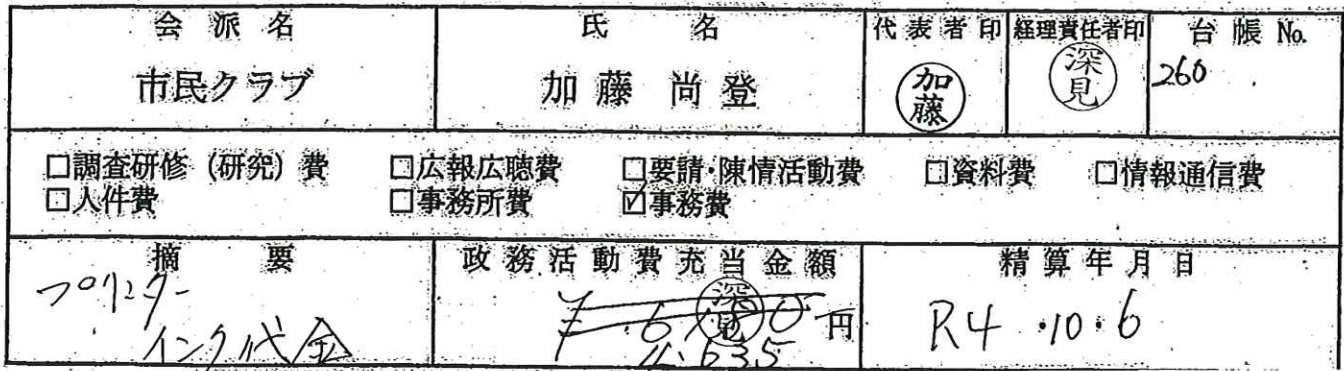 会派名 氏名 代表者印 経理責任者印 台帳No.
市民クラブ 加藤尚登 加藤 深見 260
□調査研修(研究)費 □広報広聴費 □要請・陳情活動費 □資料費 □情報通信費
□人件費 □事務所費 ☑事務費
摘要 政務活動費充当金額 精算年月日
プリンター 深見 円 R4・10・6
インク代金 635